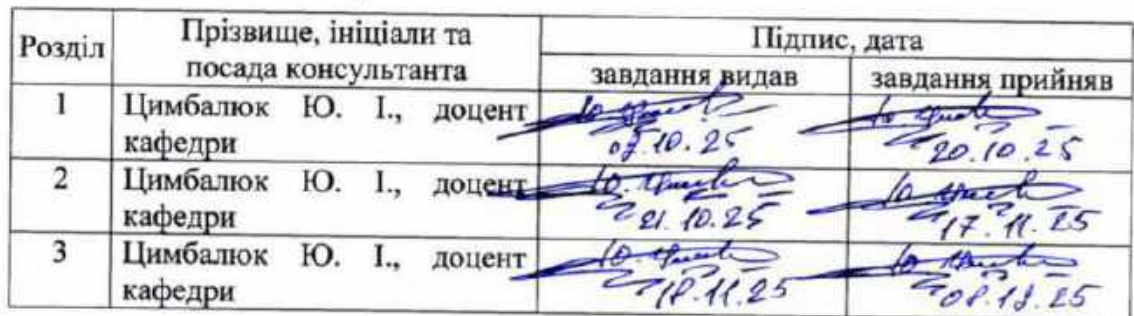 Розділ
Прізвище, ініціали та
посада консультанта
Підпис, дата
завдання видав
завдання прийняв
1
Цимбалюк Ю. І., доцент
кафедри
07.10.25
20.10.25
2
Цимбалюк Ю. І., доцент
кафедри
21.10.25
17.11.25
3
Цимбалюк Ю. І., доцент
кафедри
18.11.25